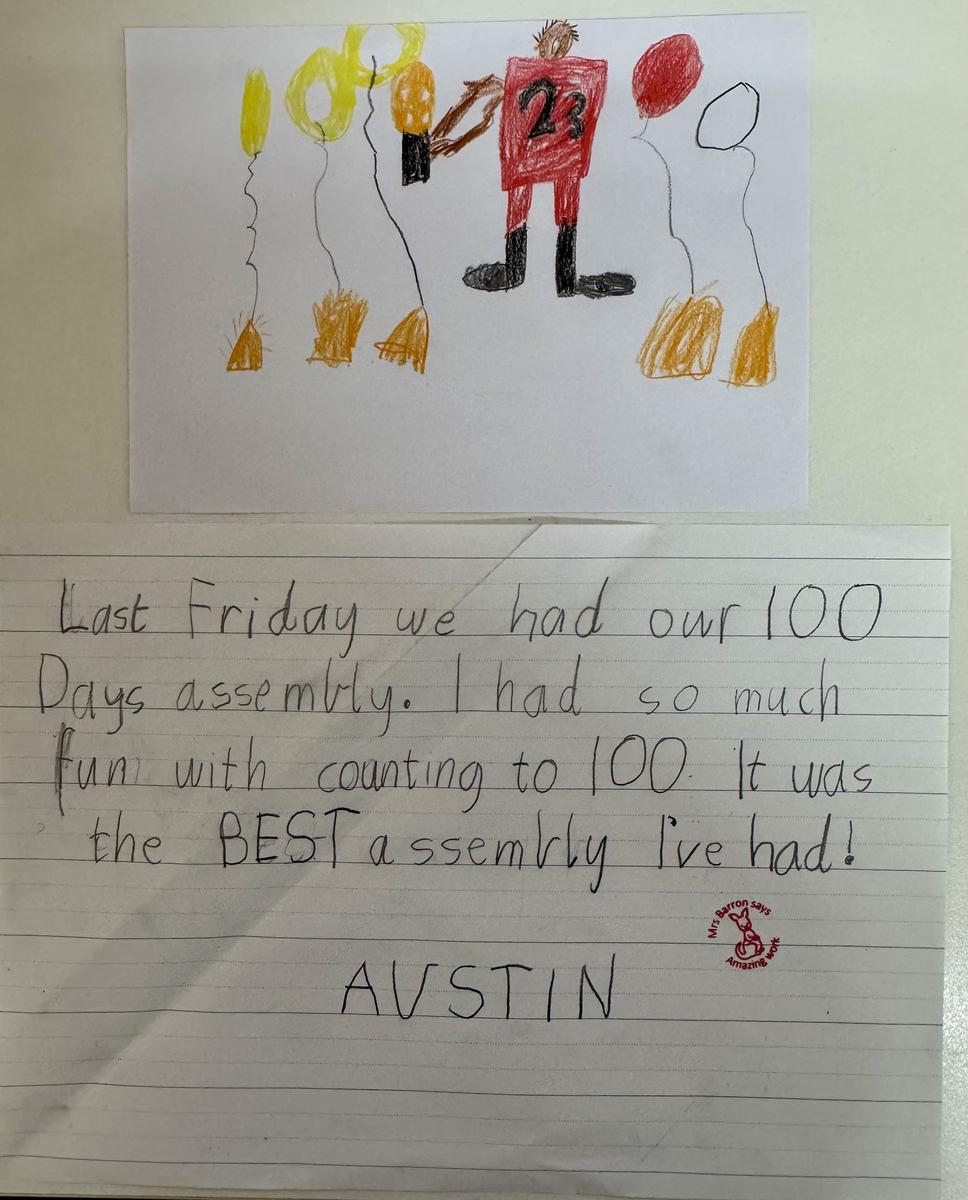 23
Last Friday we had our 100
Days assembly. I had so much
fun with counting to 100. It was
the BEST assembly I've had!
Mrs Barron says
Amazing work
AUSTIN